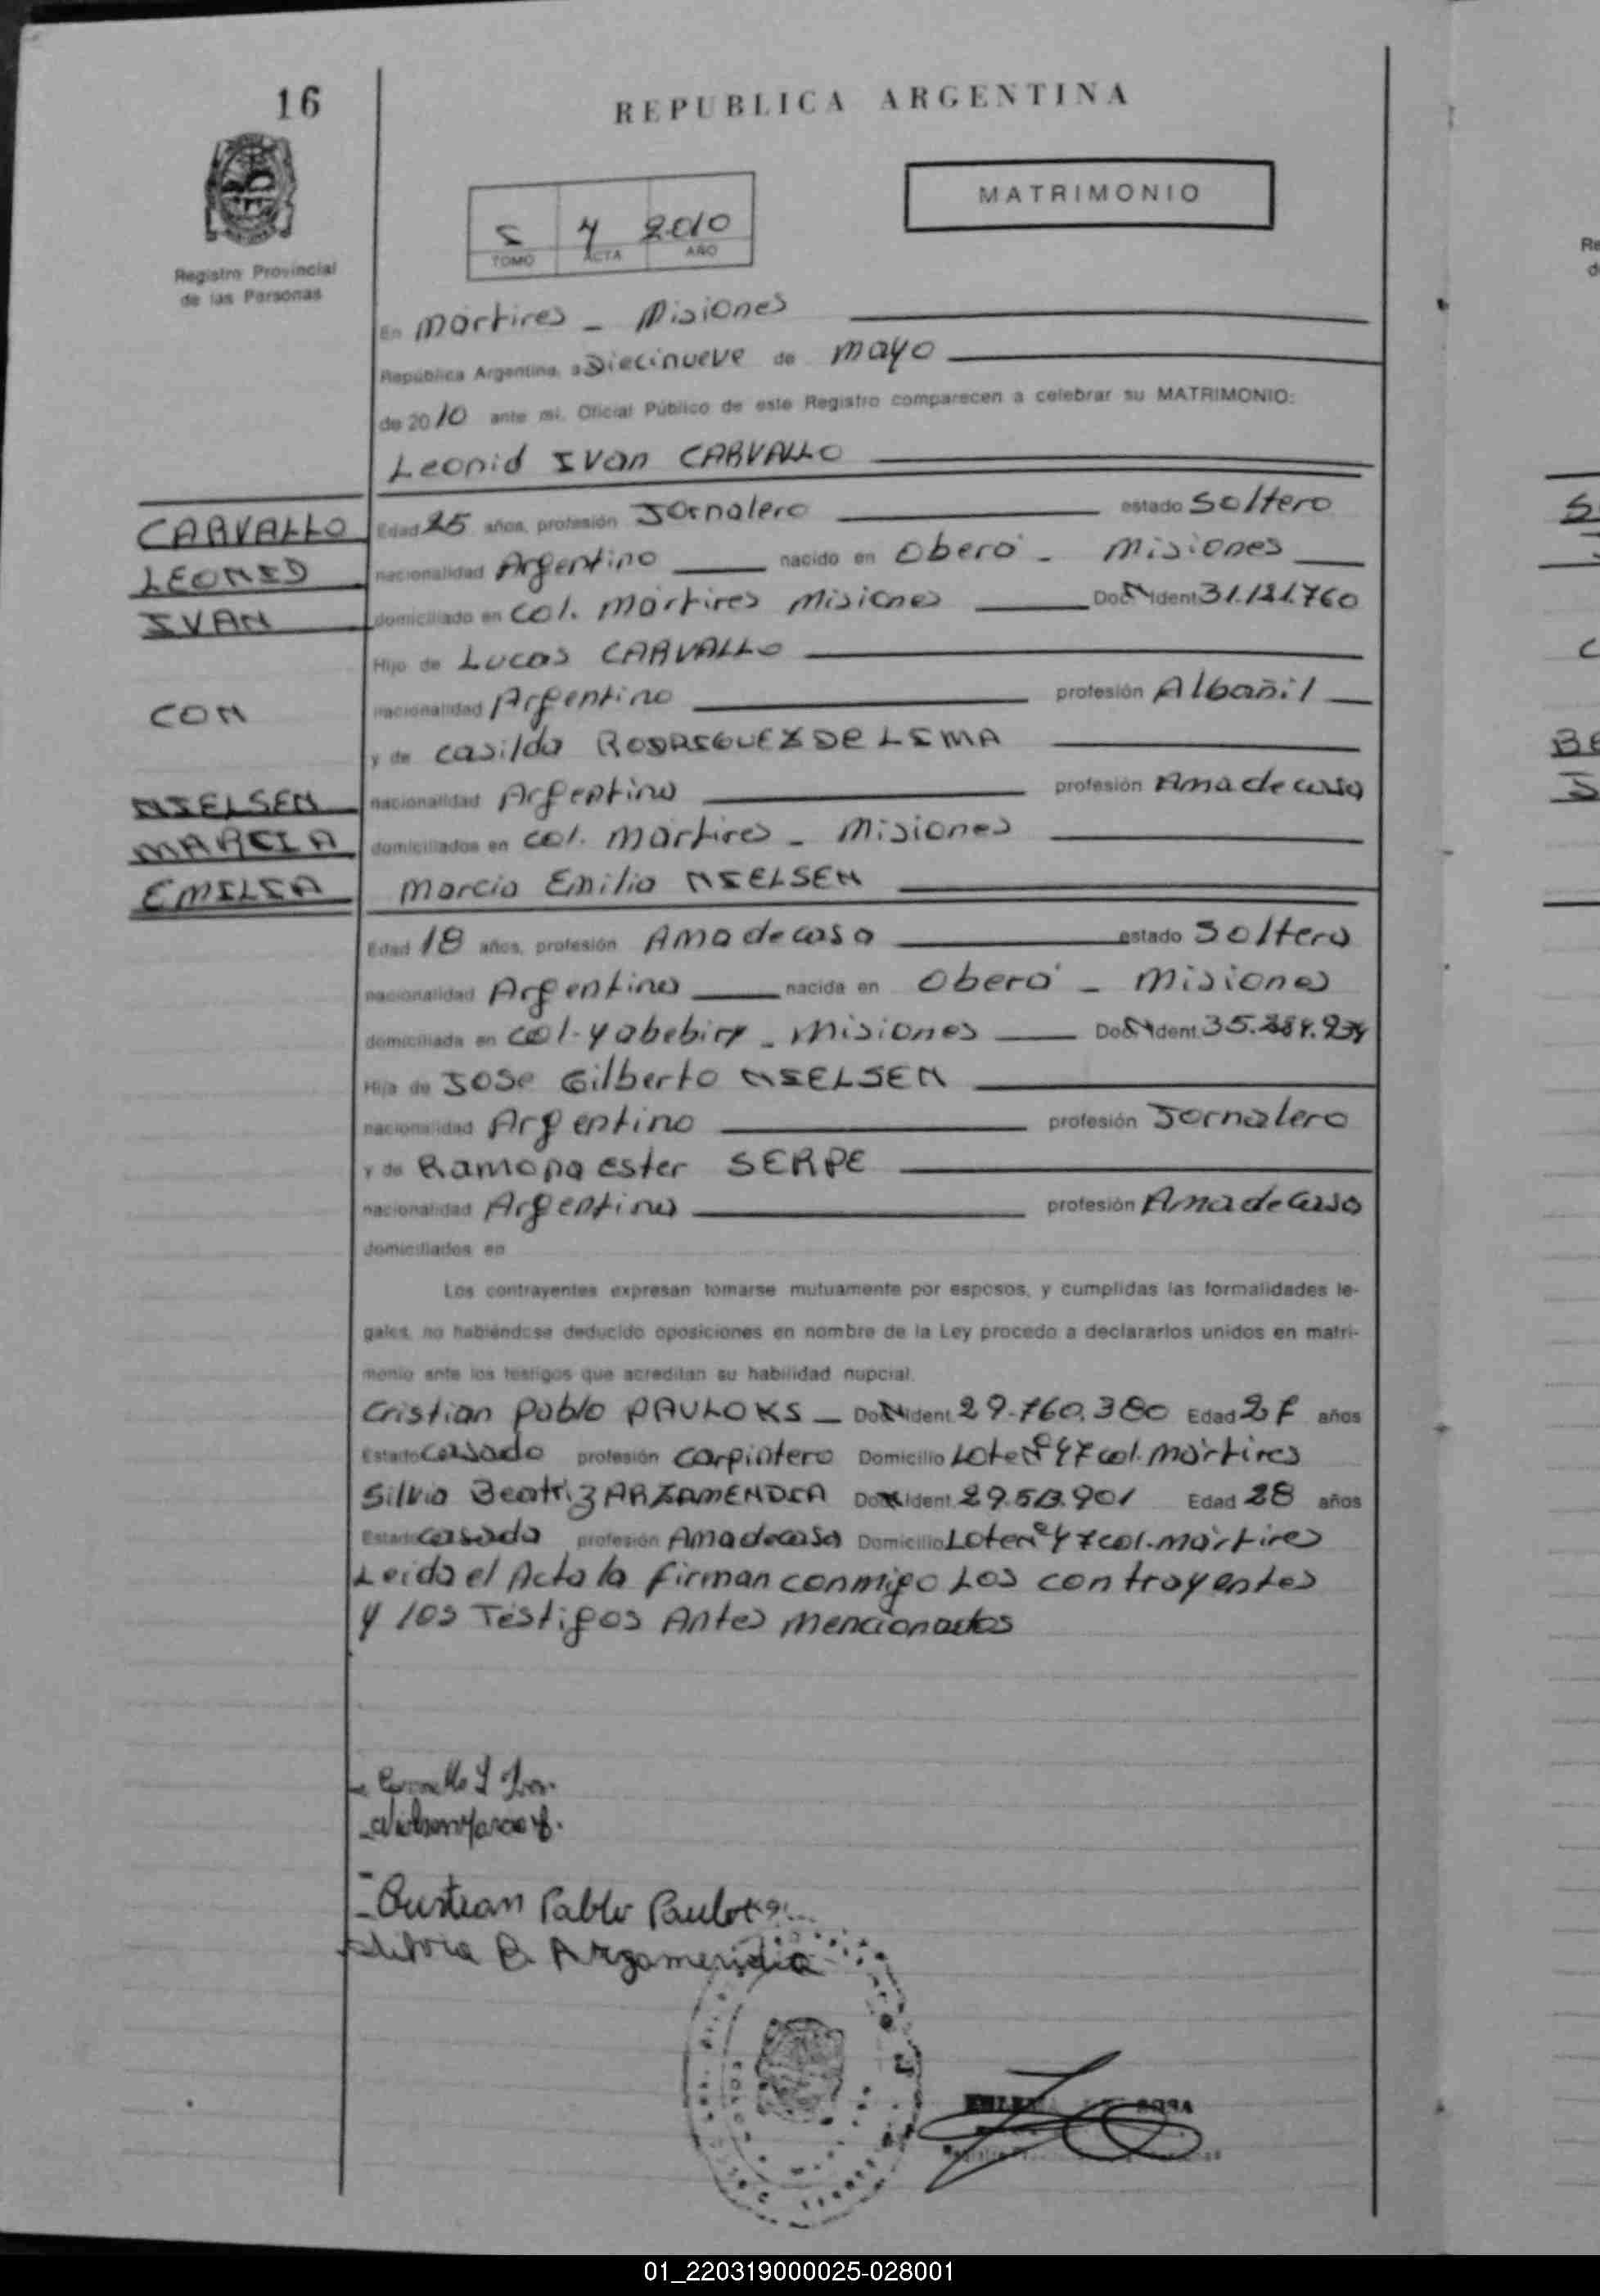 16
REPUBLICA ARGENTINA
MATRIMONIO
4 2010
TOMO ACTA AÑO
Registro Provincial
de las Personas
En Mártires - Misiones
República Argentina, a Diecinueve de mayo
de 2010 ante mi, Oficial Público de este Registro comparecen a celebrar su MATRIMONIO:
Leonid Ivan CARVALLO
CARVALLO
LEONID
IVAN
CON
NIELSEN
MARCIA
EMILIA
Edad 25 años, profesión Jornalero estado Soltero
nacionalidad Argentino nacido en Oberá - Misiones
domiciliado en Col. Mártires Misiones Doc. N Ident. 31.121.760
Hijo de Lucas CARVALLO
nacionalidad Argentino profesión Albañil
y de Casilda RODRIGUEZ DE LIMA
nacionalidad Argentina profesión Ama de casa
domiciliados en Col. Mártires - Misiones
Marcia Emilia NIELSEN
Edad 18 años, profesión Ama de casa estado Soltera
nacionalidad Argentina nacida en Oberá - Misiones
domiciliada en Col. Yabebiry - Misiones Doc. N Ident. 35.
Hija de Jose Gilberto NIELSEN
nacionalidad Argentino profesión Jornalero
y de Ramona Ester SERPE
nacionalidad Argentina profesión Ama de casa
domiciliados en
Los contrayentes expresan tomarse mutuamente por esposos, y cumplidas las formalidades le-
gales, no habiéndose deducido oposiciones en nombre de la Ley procedo a declararlos unidos en matri-
monio ante los testigos que acreditan su habilidad nupcial.
Cristian Pablo PAULOKS - Doc. N Ident. 29.760.380 Edad años
Estado Casado profesión Carpintero Domicilio Lote Nº 47 Col. Mártires
Silvia Beatriz ARZAMENDIA Doc. N Ident. 29.513.901 Edad 28 años
Estado Casada profesión Ama de casa Domicilio Lote Nº 47 Col. Mártires
Leida el Acta la firman conmigo Los contrayentes
y los Testigos Antes mencionados
Carvallo L Ivan.
Nielsen Marcia E.
Cristian Pablo Pauloks
Silvia B. Arzamendia
SOSA
01_220319000025-028001